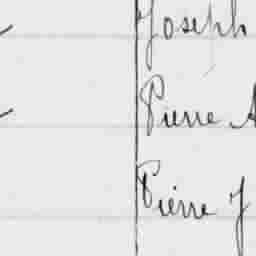 Joseph
Pierre A
Pierre J